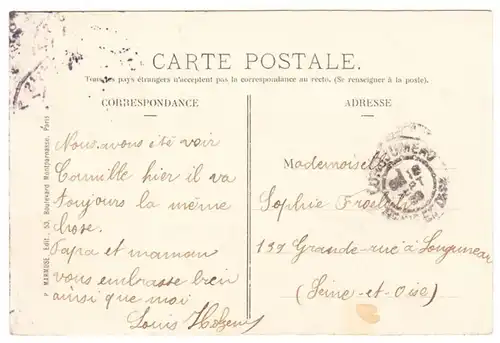 CARTE POSTALE.
Tous les pays étrangers n'acceptent pas la correspondance au recto. (Se renseigner à la poste).
CORRESPONDANCE
Nous avons été voir
Camille hier il va
toujours la même
chose.
Papa et maman
vous embrasse bien
ainsi que moi
Louis
ADRESSE
Mademoiselle
Sophie
139 Grande-rue à Longjumeau
(Seine-et-Oise)
MARMUSE, Edit., 53, Boulevard Montparnasse, Paris